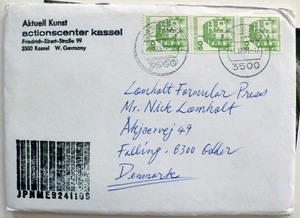 Aktuell Kunst
actionscenter kassel
Friedrich-Ebert-Straße 99
3500 Kassel W. Germany
50
3500
3500
Lomholt Formular Press
Mr. Nick Lomholt
Åkjærvej 49
Falling. 6300 Odder
Denmark
JPNME9241105